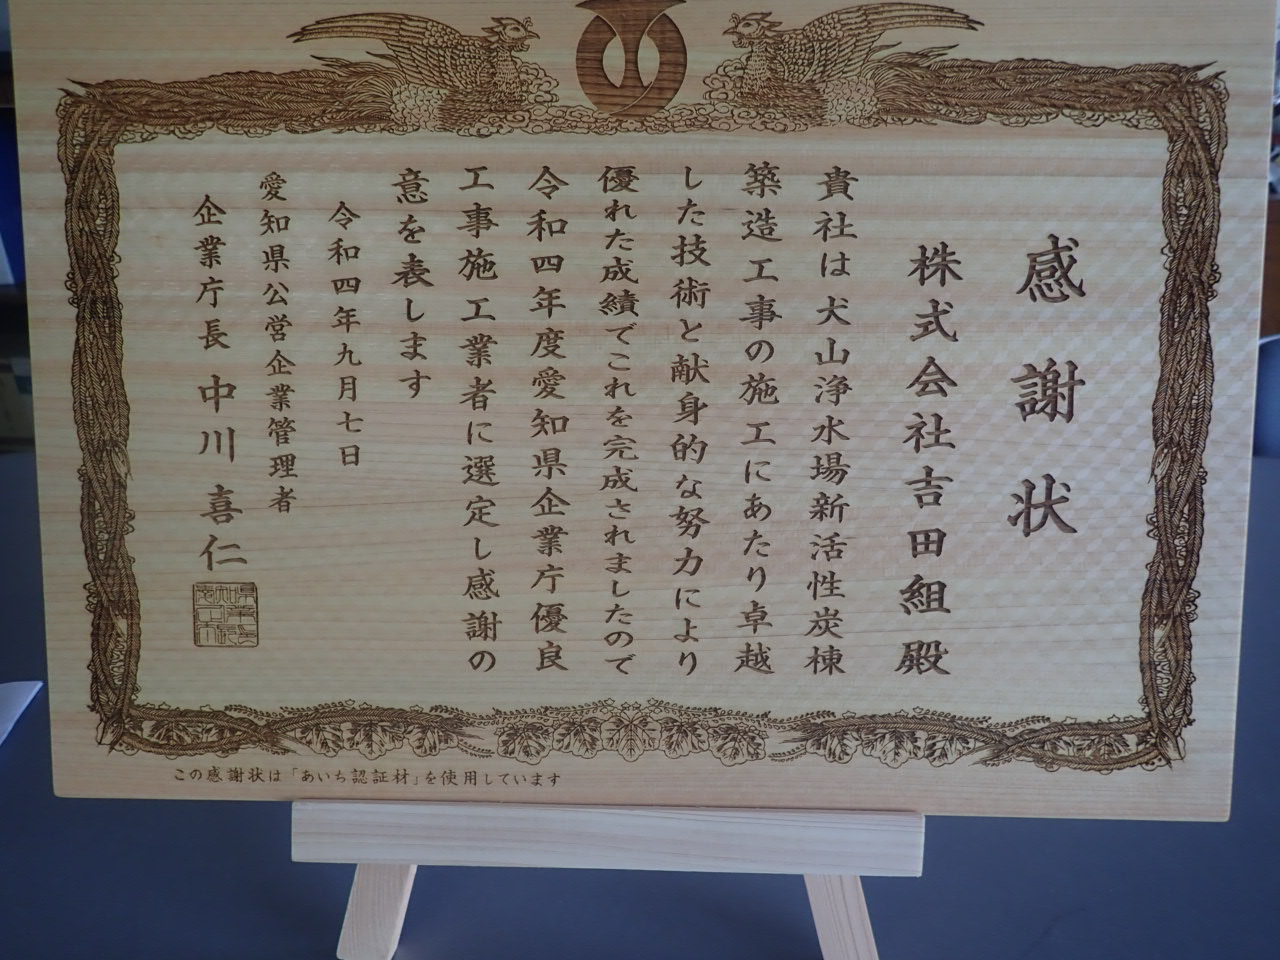 感謝状
株式会社吉田組 殿
貴社は犬山浄水場新活性炭棟
築造工事の施工にあたり卓越
した技術と献身的な努力により
優れた成績でこれを完成されましたので
令和四年度愛知県企業庁優良
工事施工業者に選定し感謝の
意を表します
令和四年九月七日
愛知県公営企業管理者
企業庁長 中川喜仁
この感謝状は「あいち認証材」を使用しています